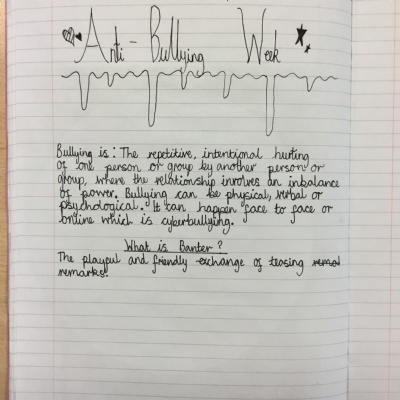 Anti - Bullying Week
Bullying is: The repetitive, intentional hurting
of one person or group by another person or
group, where the relationship involves an imbalance
of power. Bullying can be physical, verbal or
psychological. It can happen face to face or
online which is cyberbullying.
What is Banter?
The playful and friendly exchange of teasing
remarks.